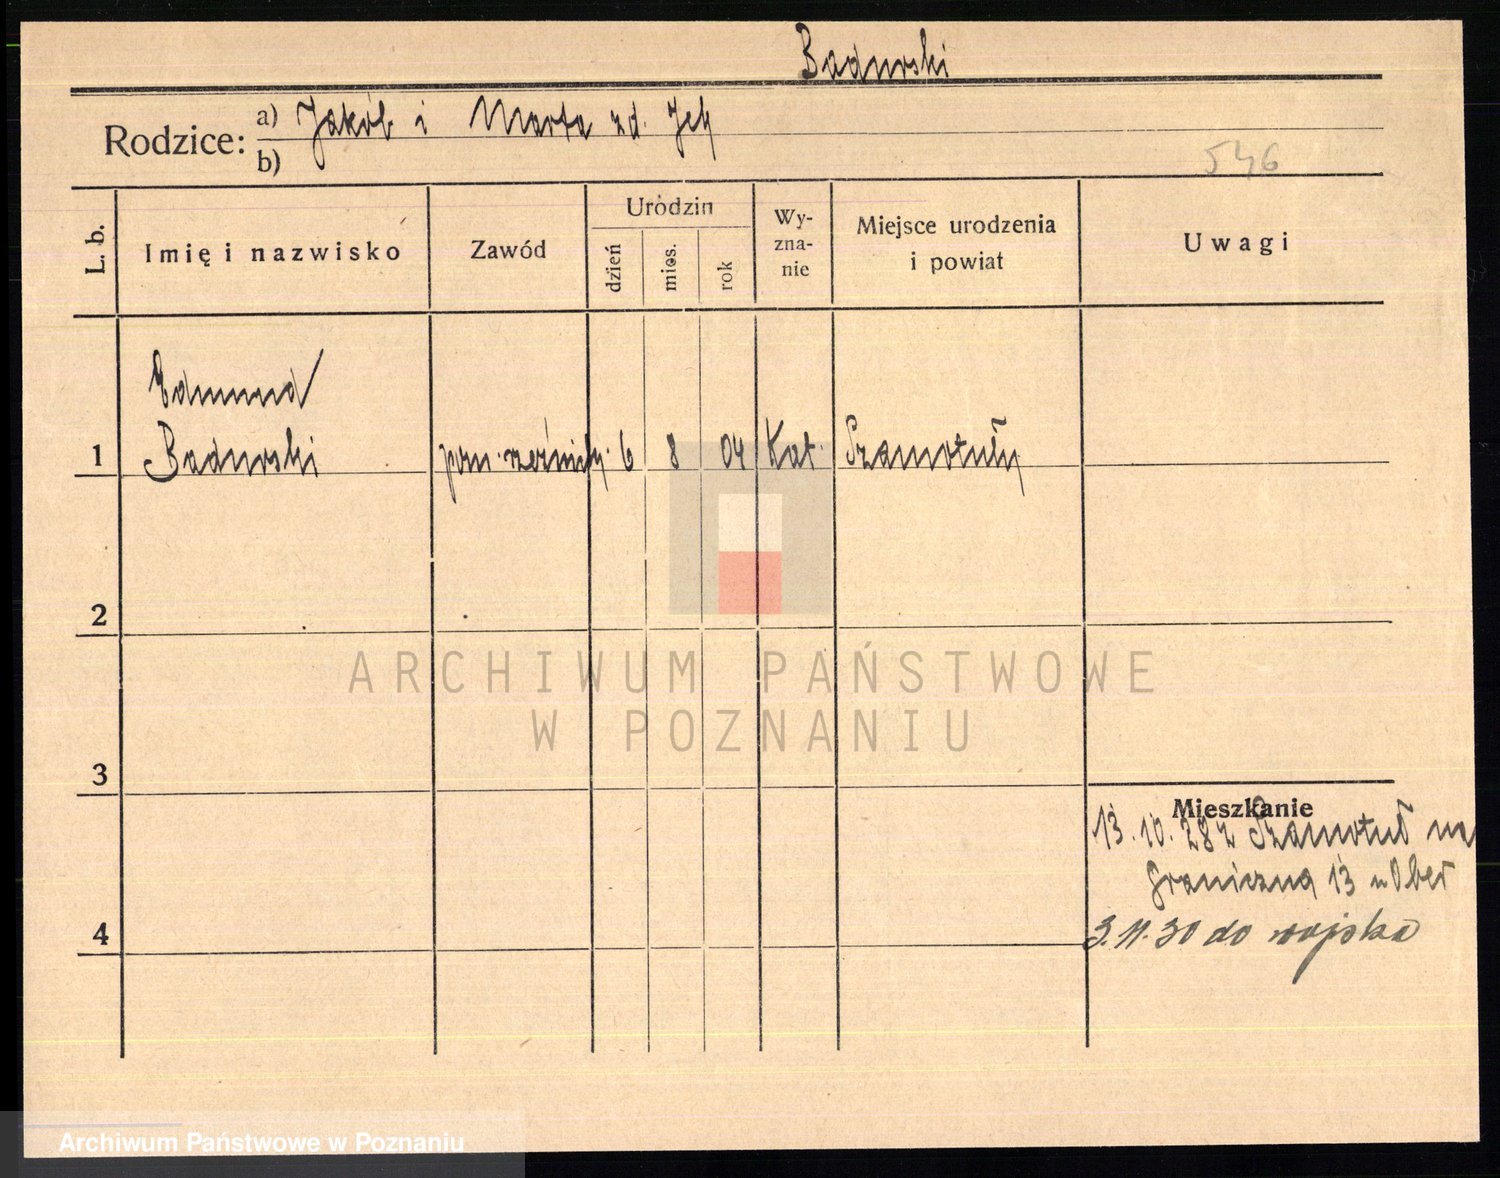 Badurski
Rodzice: a) Jakób i Marta zd. Jek
b)
546
L. b.
Imię i nazwisko
Zawód
Urodzin
dzień
mies.
rok
Wy-
zna-
nie
Miejsce urodzenia
i powiat
Uwagi
Edmund
1 Badurski pom. rzeźnicki. 6 8 04 Kat. Szamotuły
2
ARCHIWUM PAŃSTWOWE
W POZNANIU
3
Mieszkanie
13.10.28 z Szamotuł na
Graniczną 13 u
4
3.11.30 do wojska
Archiwum Państwowe w Poznaniu